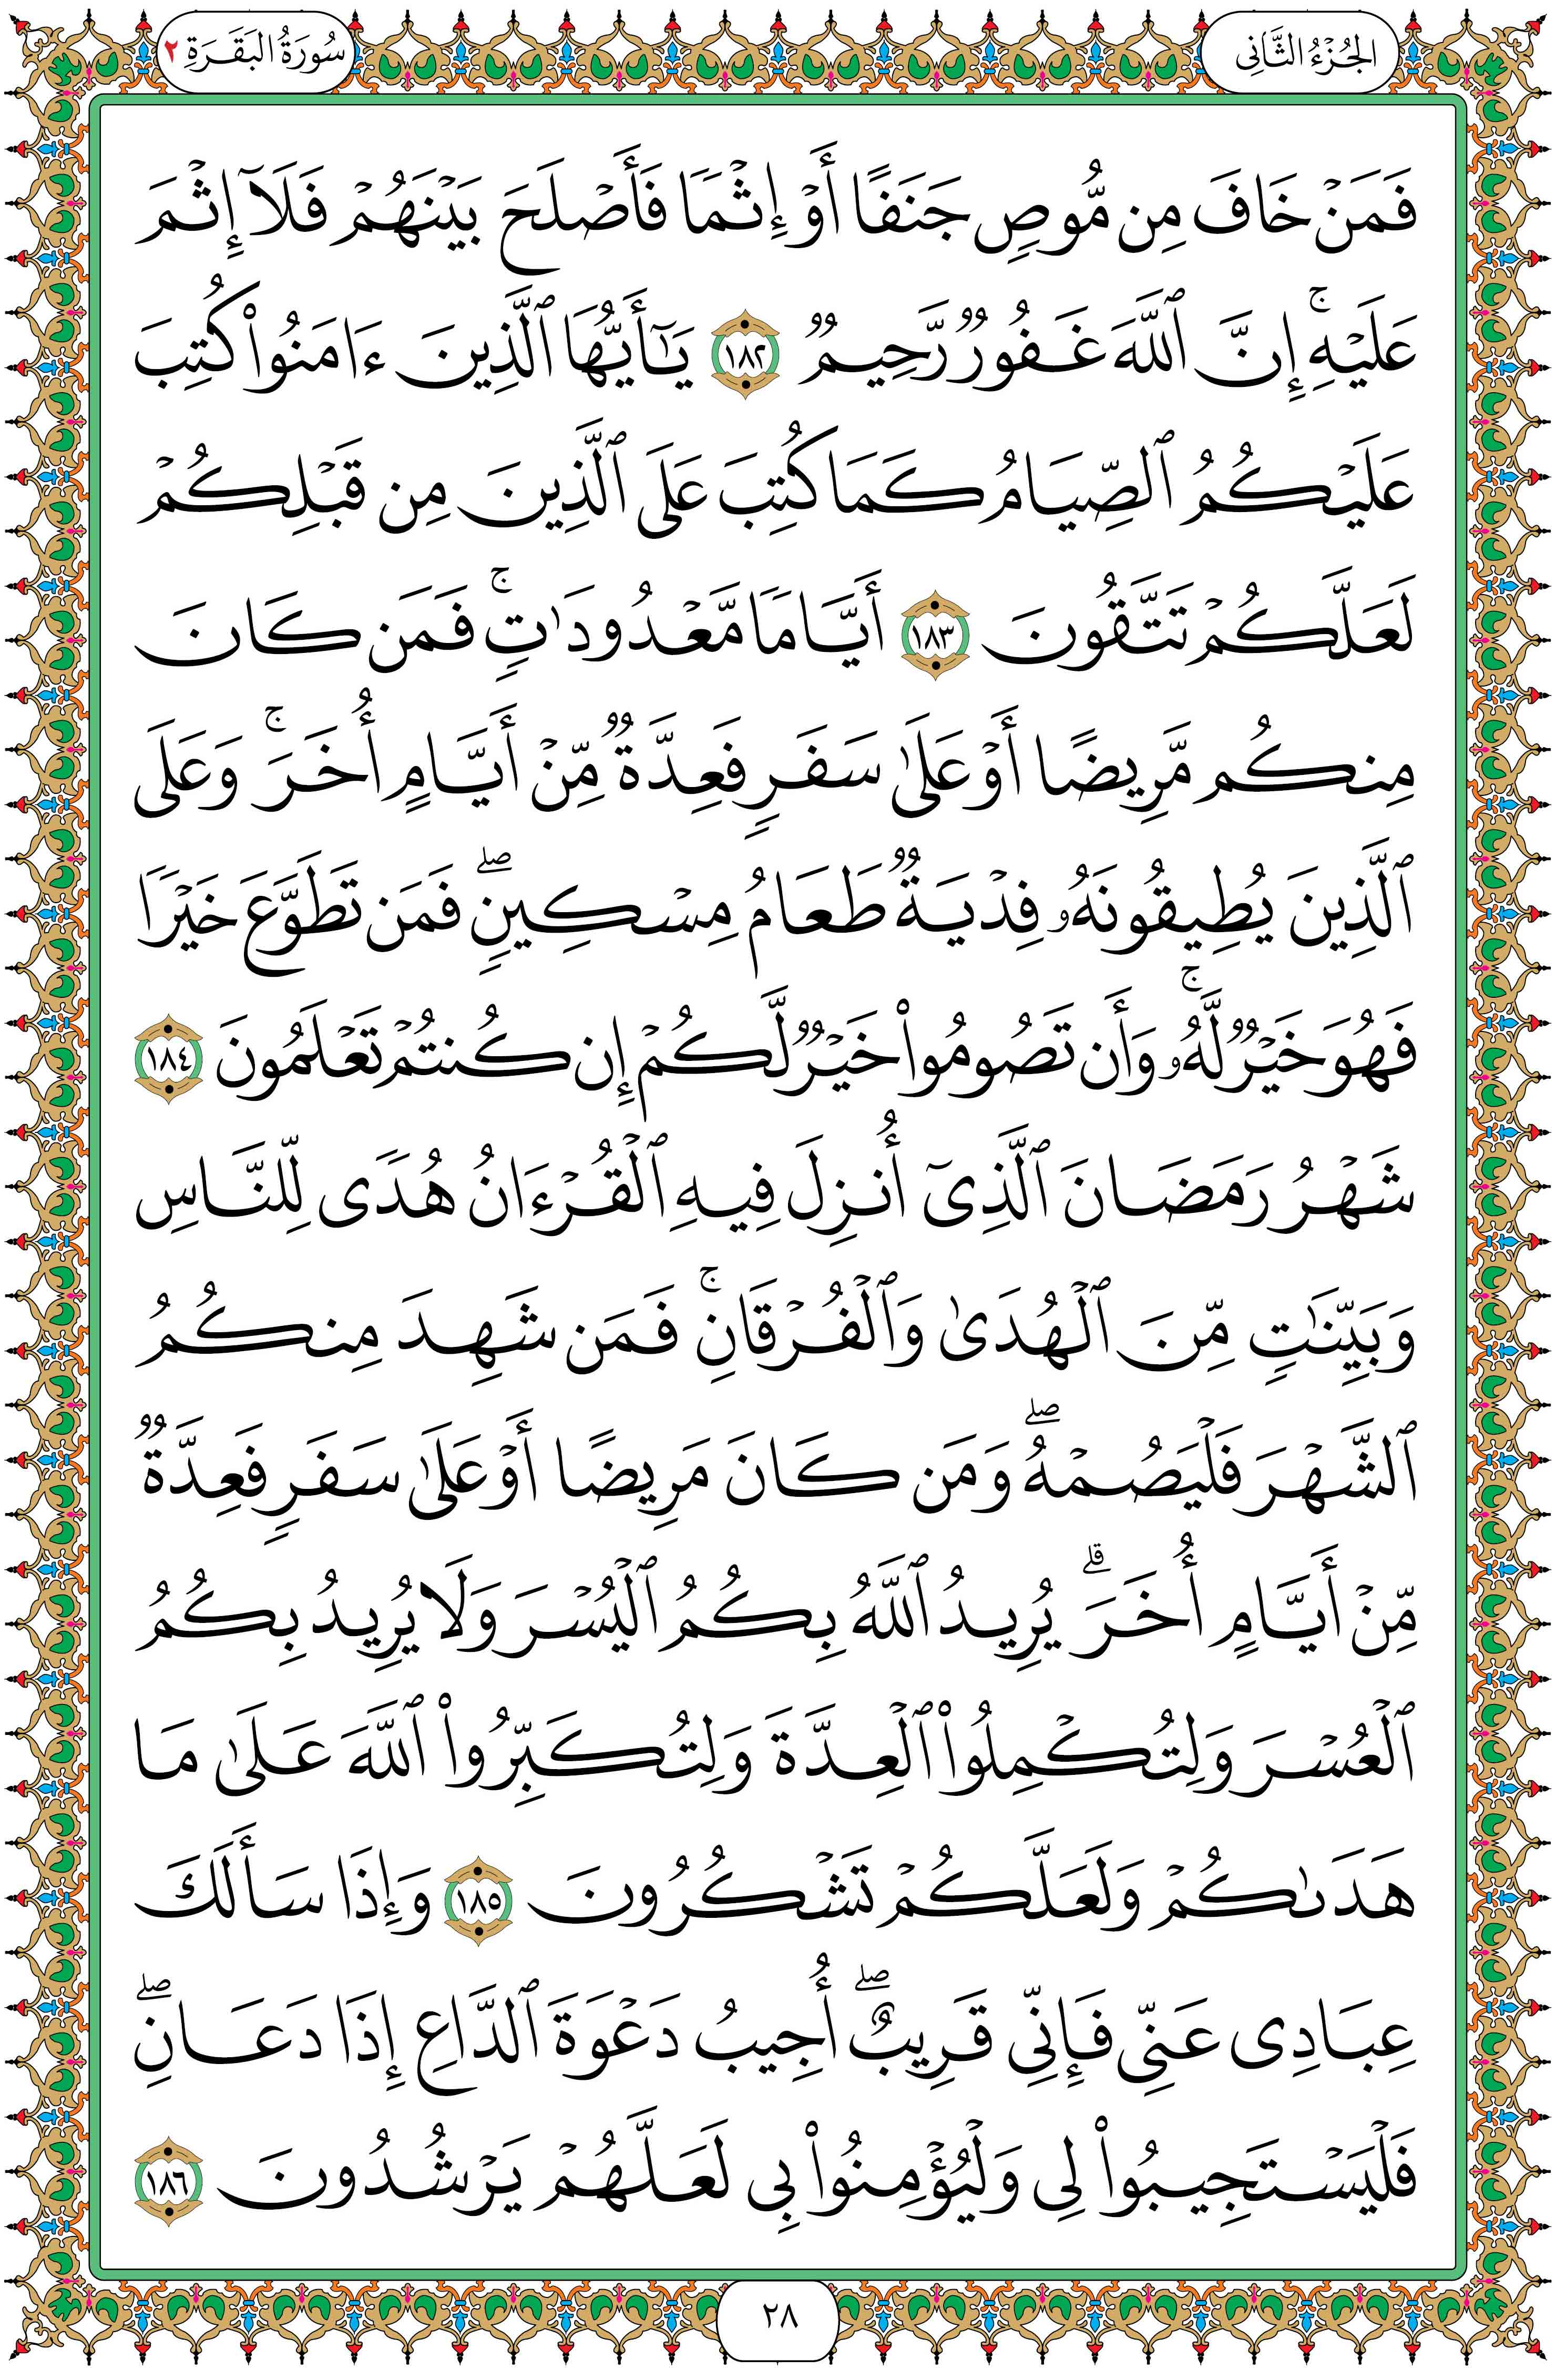 الجُزْءُ الثَّانِي
سُورَةُ البَقَرَةِ ٢
فَمَنۡ خَافَ مِن مُّوصٖ جَنَفًا أَوۡ إِثۡمٗا فَأَصۡلَحَ بَيۡنَهُمۡ فَلَآ إِثۡمَ
عَلَيۡهِۚ إِنَّ ٱللَّهَ غَفُورٞ رَّحِيمٞ ١٨٢ يَٰٓأَيُّهَا ٱلَّذِينَ ءَامَنُواْ كُتِبَ
عَلَيۡكُمُ ٱلصِّيَامُ كَمَا كُتِبَ عَلَى ٱلَّذِينَ مِن قَبۡلِكُمۡ
لَعَلَّكُمۡ تَتَّقُونَ ١٨٣ أَيَّامٗا مَّعۡدُودَٰتٖۚ فَمَن كَانَ
مِنكُم مَّرِيضًا أَوۡ عَلَىٰ سَفَرٖ فَعِدَّةٞ مِّنۡ أَيَّامٍ أُخَرَۚ وَعَلَى
ٱلَّذِينَ يُطِيقُونَهُۥ فِدۡيَةٞ طَعَامُ مِسۡكِينٖۖ فَمَن تَطَوَّعَ خَيۡرٗا
فَهُوَ خَيۡرٞ لَّهُۥۚ وَأَن تَصُومُواْ خَيۡرٞ لَّكُمۡ إِن كُنتُمۡ تَعۡلَمُونَ ١٨٤
شَهۡرُ رَمَضَانَ ٱلَّذِيٓ أُنزِلَ فِيهِ ٱلۡقُرۡءَانُ هُدٗى لِّلنَّاسِ
وَبَيِّنَٰتٖ مِّنَ ٱلۡهُدَىٰ وَٱلۡفُرۡقَانِۚ فَمَن شَهِدَ مِنكُمُ
ٱلشَّهۡرَ فَلۡيَصُمۡهُۖ وَمَن كَانَ مَرِيضًا أَوۡ عَلَىٰ سَفَرٖ فَعِدَّةٞ
مِّنۡ أَيَّامٍ أُخَرَۗ يُرِيدُ ٱللَّهُ بِكُمُ ٱلۡيُسۡرَ وَلَا يُرِيدُ بِكُمُ
ٱلۡعُسۡرَ وَلِتُكۡمِلُواْ ٱلۡعِدَّةَ وَلِتُكَبِّرُواْ ٱللَّهَ عَلَىٰ مَا
هَدَىٰكُمۡ وَلَعَلَّكُمۡ تَشۡكُرُونَ ١٨٥ وَإِذَا سَأَلَكَ
عِبَادِي عَنِّي فَإِنِّي قَرِيبٌۖ أُجِيبُ دَعۡوَةَ ٱلدَّاعِ إِذَا دَعَانِۖ
فَلۡيَسۡتَجِيبُواْ لِي وَلۡيُؤۡمِنُواْ بِي لَعَلَّهُمۡ يَرۡشُدُونَ ١٨٦
٢٨